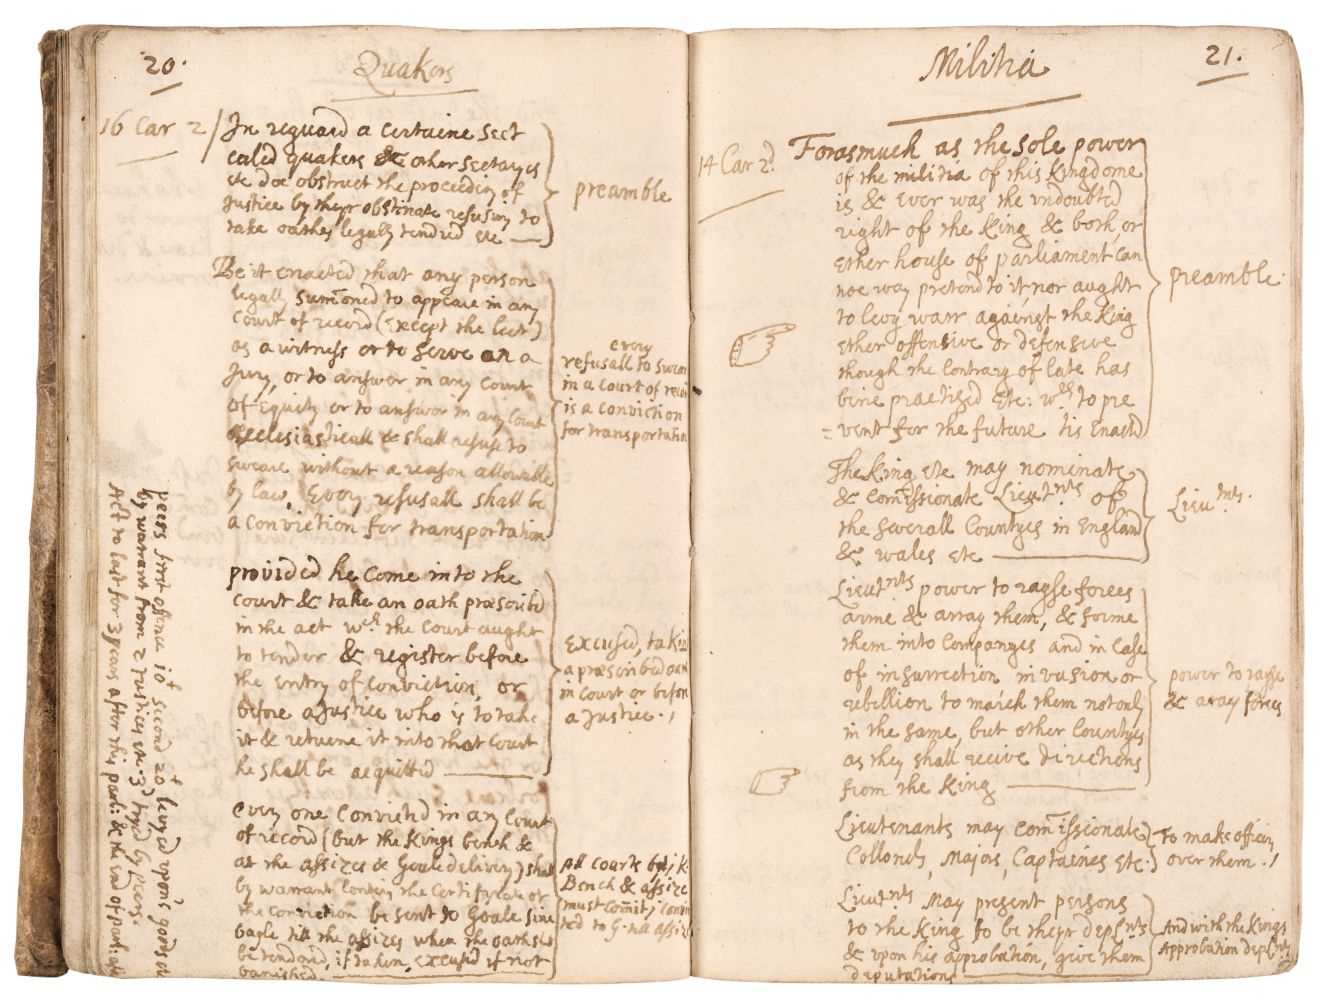 20.
Quakers
16 Car 2
In reguard a certaine sect
caled quakers & other sectaryes
etc doe obstruct the proceeding of
Justice by theyr obstinate refusing to
take oathes legaly tendred etc
preamble
Be it enacted that any person
legally sumoned to appeare in any
Court of record (except the leet)
as a witness or to serve on a
Jury, or to answer in any Court
of Equity or to answer in any Court
Ecclesiasticall & shall refuse to
sweare without a reason allowable
by law, Every refusall shall be
a conviction for transportation
every
refusall to swear
in a court of
is a conviction
for transportation
provided he come into the
Court & take an oath præscribd
in the act wch the Court aught
to tender & register before
the entry of conviction, or
before a Justice who is to take
it & returne it into that Court
he shall be acquitted
Excused,
a præscribed
in court or before
a Justice.
every one Convictd in any Court
of record (but the Kings bench &
at the assizes & Goale delivery) shal
by warrant the Certifycate of
the conviction be sent to Goale sine
bayle till the assizes when the oath
be tendred, if taken, excusd if not
banished
All courts but K:
Bench & assize
must comit
to G. till assize
peers first offence 10l second 20l levyed upon goods etc
by warrant from 2 Justices etc. 3d tryd by peers.
Act to last for 3 years after this parl: & the end of parl:
21.
Militia
14 Car 2d.
Forasmuch as the sole power
of the militia of this Kingdome
is & Ever was the undoubted
right of the King & both, or
Ether house of parliament can
noe way pretend to it, nor aught
to levy warr against the King
Ether offensive or defensive
though the Contrary of late has
bine practised etc: wch to pre
=vent for the future tis Enactd
preamble.
The King etc may nominate
& comissionate Lieutnts of
the severall Countyes in England
& wales etc
Lieutnts.
Lieutnts power to raysse forces
arme & array them, & forme
them into Companyes and in case
of insurrection invasion or
rebellion to march them not only
in the same, but other Countyes
as they shall recive directions
from the King
power to raysse
& aray forces
Lieutenants may comissionate
Collonels, Majors, Captaines etc.
To make officers
over them.
Lieutnts may present persons
to the King to be theyr deplnts
& upon his approbation, give them
deputations
And with the Kings
Approbation deplnts